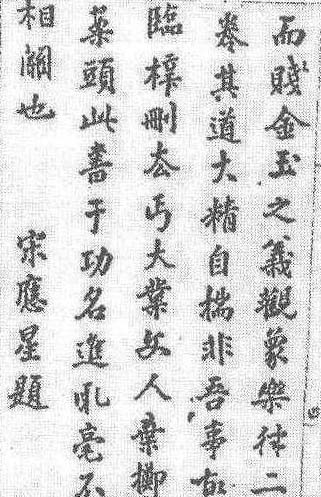 而賤金玉之義觀象樂律二
卷其道大精自揣非吾事故
臨梓刪去丐大業文人棄擲
案頭此書于功名進取毫不
相關也　宋應星題